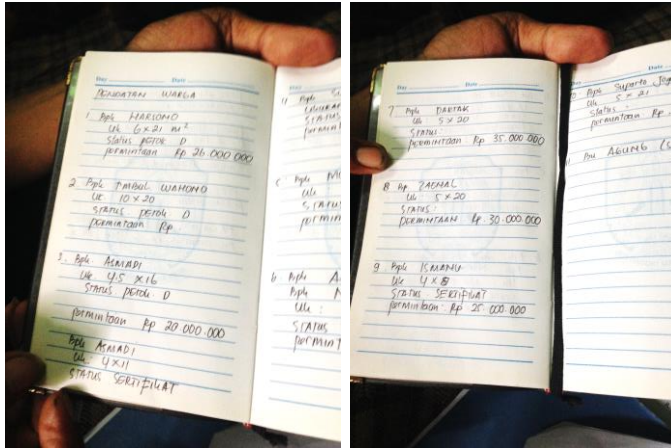 Day Date
PENDATAN WARGA
1 Bpk HARSONO
Uk 6 x 21 m²
Status petok D
permintaan Rp 26.000.000
2 Bpk TMBUL WAHONO
Uk 10 x 20
STATUS petok. D
permintaan Rp.
3. Bpk ASMADI
Uk 4.5 x 16
STATUS petok. D
permintaan Rp 20 000.000
Bpk ASMADI
Uk: 4 x 11
STATUS SERTIFIKAT
4 Bpk
STATUS
Uk
STATUS
6 Bpk
Bpk
Uk :
STATUS
Day Date
7 Bpk
Uk 5 x 20
STATUS:
PERMINTAAN Rp 35.000.000
8 Bp ZAENAL
Uk 5 x 20
STATUS:
PERMINTAAN Rp 30.000.000
9 Bpk ISMANU
Uk 4 x 8
STATUS SERTIFIKAT
permintaan: Rp 25 000.000
Bpk Suparto
Uk 5 x 21
Status:
permintaan Rp.
AGUNG